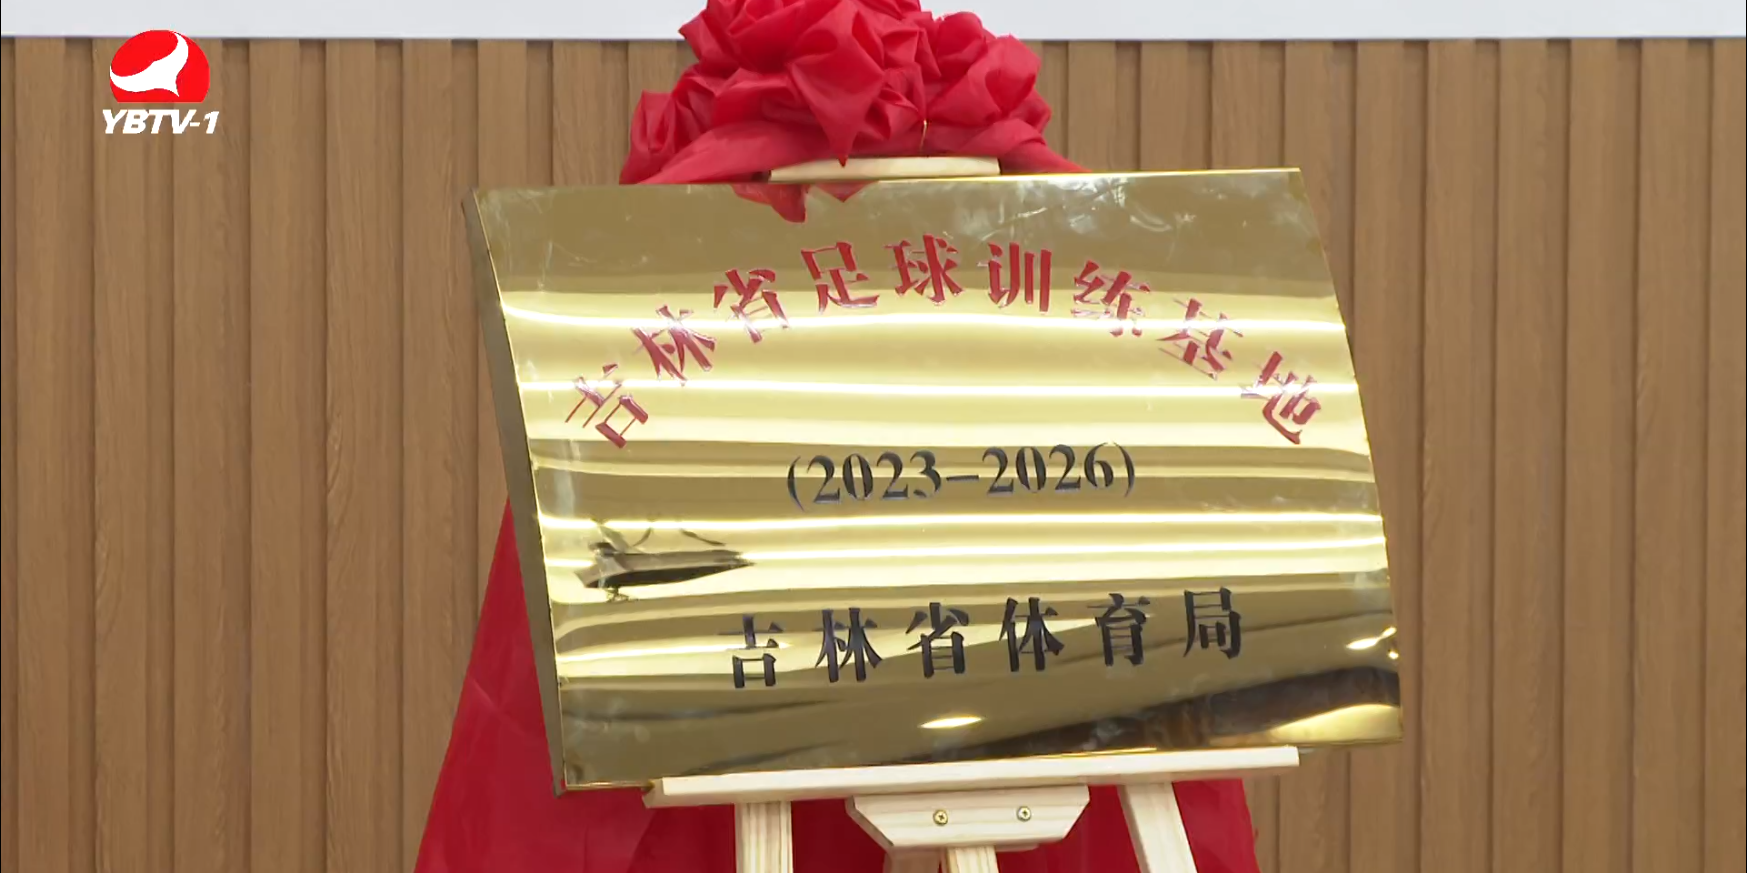 YBTV-1
吉林省足球训练基地
(2023-2026)
吉林省体育局